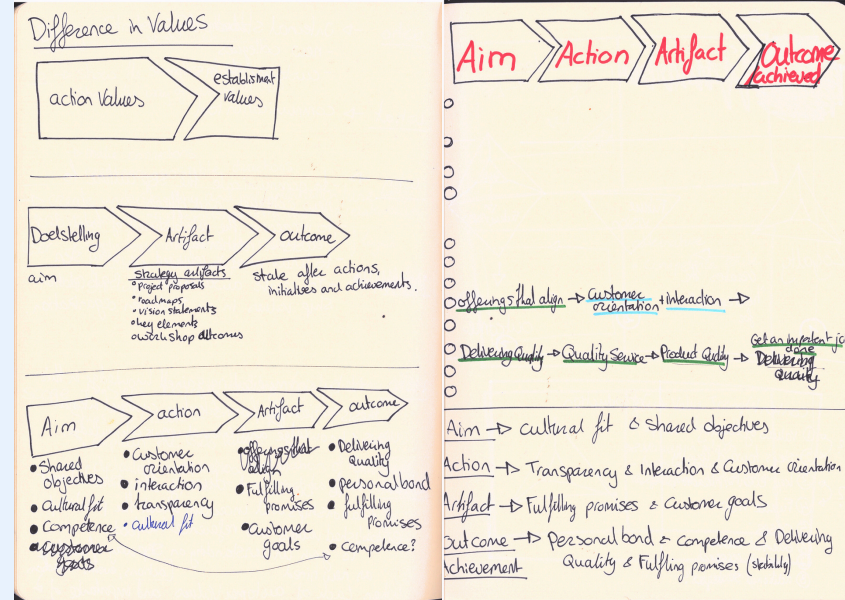 Difference in Values
action Values
establisment
values
Doelstelling
Artifact
outcome
aim
strategy artifacts
• Project proposals
• roadmaps
• vision statements
• key elements
• Workshop outcomes
State after actions,
initiatises and achievements.
Aim
action
Artifact
outcome
• Shared
objectives
• Cultural fit
• Competence
• Customer
goals
• Customer
orientation
• interaction
• transparency
• cultural fit
• offerings that
align
• Fulfilling
promises
• Customer
goals
• Delivering
Quality
• personal bond
• fulfilling
promises
• competence?
Aim
Action
Artifact
Outcome
achieved
offerings that align → Customer
orientation + interaction →
Delivering Quality → Quality Service → Product Quality →
Get an important jo
done
Delivering
Quality
Aim → cultural fit & Shared objectives
Action → Transparency & Interaction & Customer orientation
Artifact → Fulfilling promises & Customer goals
Outcome → Personal bond & competence & Delivering
Achievement Quality & Fulfling promises (stability)